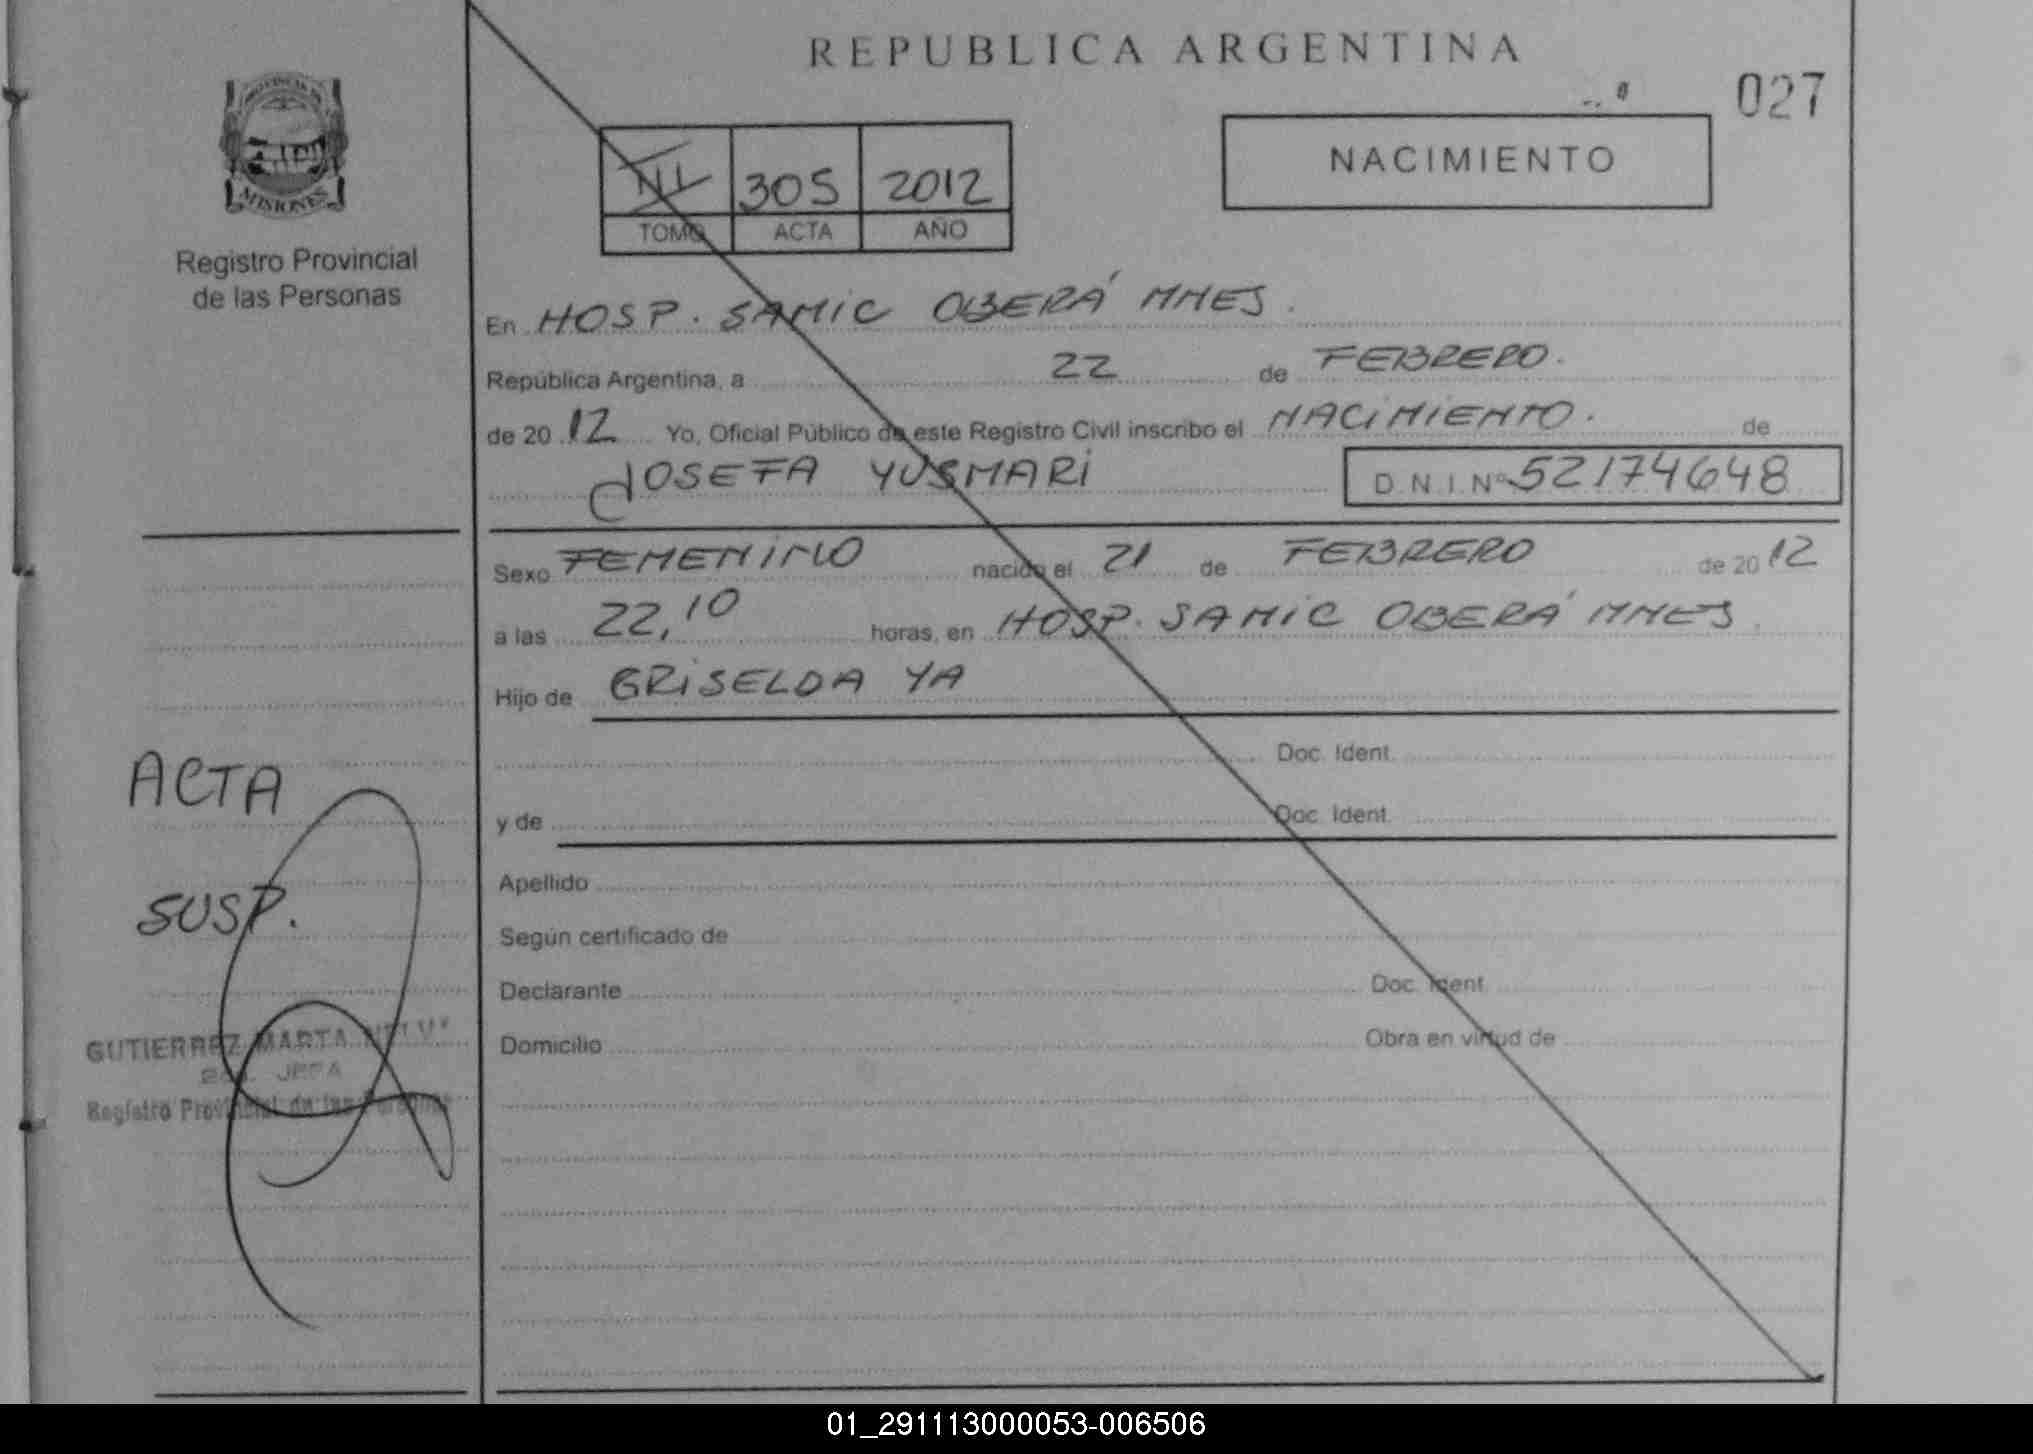 REPUBLICA ARGENTINA
027
PROVINCIA DE
MISIONES
Registro Provincial
de las Personas
III 305 2012
TOMO ACTA AÑO
NACIMIENTO
En HOSP. SAMIC OBERÁ MNES.
República Argentina, a 22 de FEBRERO.
de 20 12 Yo, Oficial Público de este Registro Civil inscribo el NACIMIENTO. de
JOSEFA YUSMARI D.N.I.Nº 52174648
Sexo FEMENINO nacido el 21 de FEBRERO de 20 12
a las 22,10 horas, en HOSP. SAMIC OBERÁ MNES.
Hijo de GRISELDA YA
Doc. Ident.
y de Doc. Ident.
Apellido
Según certificado de
Declarante Doc. Ident.
Domicilio Obra en virtud de
ACTA
SUSP.
GUTIERREZ MARTA
JEFA
Registro Provincial de las Personas
01_291113000053-006506